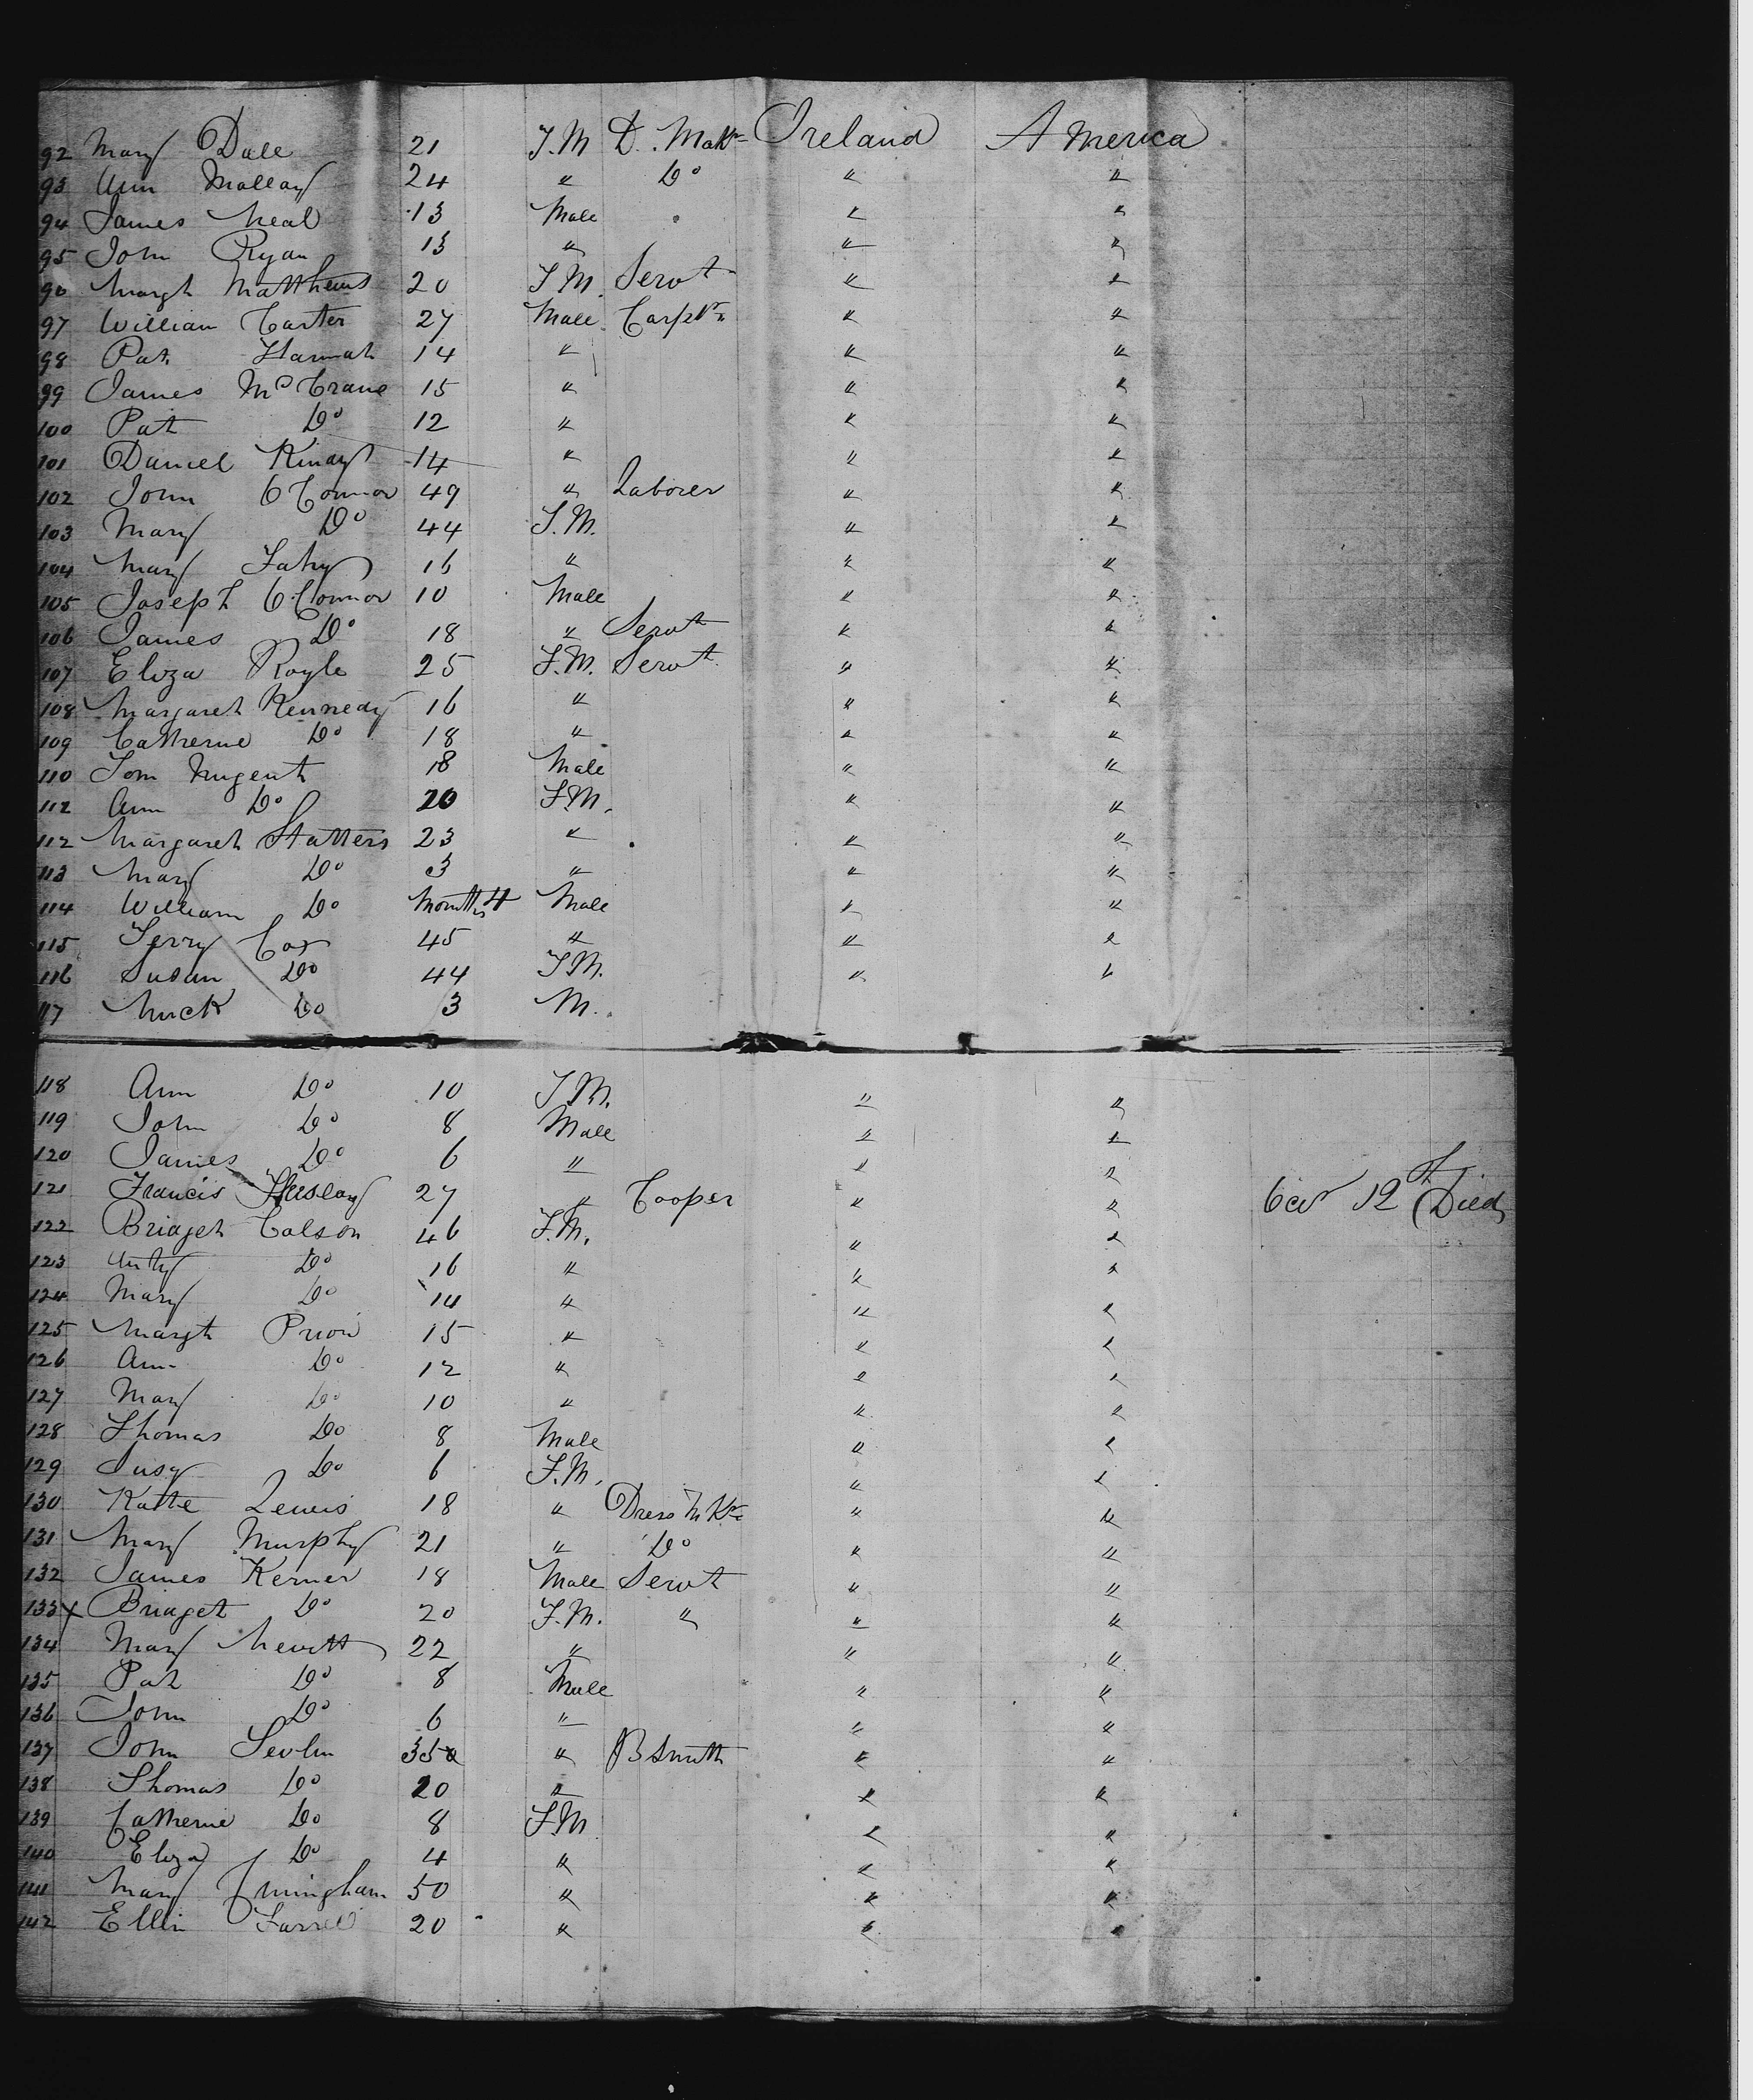 92 Mary Dale 21 F.M D. Makr Ireland America
93 Ann Mallay 24 " Do " "
94 James Neal 13 Male " "
95 John Ryan 13 " " "
96 Margt Matthews 20 F.M. Servt " "
97 William Carter 27 Male Carptr " "
98 Pat Hannah 14 " " "
99 James McCrane 15 " " "
100 Pat Do 12 " " "
101 Daniel Kinay 14 " " "
102 John O'Connor 49 " Laborer " "
103 Mary Do 44 F.M. " "
104 Mary Fahy 16 " " "
105 Joseph O'Connor 10 Male " "
106 James Do 18 " Servt " "
107 Eliza Royle 25 F.M. Servt " "
108 Margaret Kennedy 16 " " "
109 Catherine Do 18 " " "
110 Tom Nugent 18 Male " "
112 Ann Do 20 F.M. " "
112 Margaret Statters 23 " " "
113 Mary Do 3 " " "
114 William Do Months 4 Male " "
115 Terry Cox 45 " " "
116 Susan Do 44 F.M. " "
117 Mick Do 3 M.
118 Ann Do 10 F.M. " "
119 John Do 8 Male " "
120 James Do 6 " " "
121 Francis 27 " Cooper " " 12th Died
122 Bridget Colson 46 F.M. " "
123 Unty Do 16 " " "
124 Mary Do 14 " " "
125 Margt Prior 15 " " "
126 Ann Do 12 " " "
127 Mary Do 10 " " "
128 Thomas Do 8 Male " "
129 Susy Do 6 F.M. " "
130 Katte Lewis 18 " Dress Mkr " "
131 Mary Murphy 21 " Do " "
132 James Kerner 18 Male Servt " "
133 x Bridget Do 20 F.M. " " "
134 Mary Hewitt 22 " " "
135 Pat Do 8 Male " "
136 John Do 6 " " "
137 John Sevlin 35 " B Smith " "
138 Thomas Do 20 " " "
139 Catherine Do 8 F.M " "
140 Eliza Do 4 " " "
141 Mary 50 " " "
142 Ellin Farrel 20 " " "